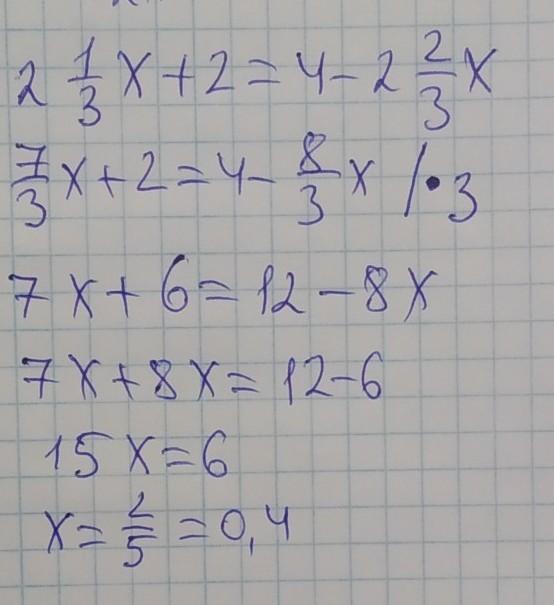 2 1/3 x + 2 = 4 - 2 2/3 x
7/3 x + 2 = 4 - 8/3 x /•3
7x + 6 = 12 - 8x
7x + 8x = 12 - 6
15x = 6
x = 2/5 = 0,4